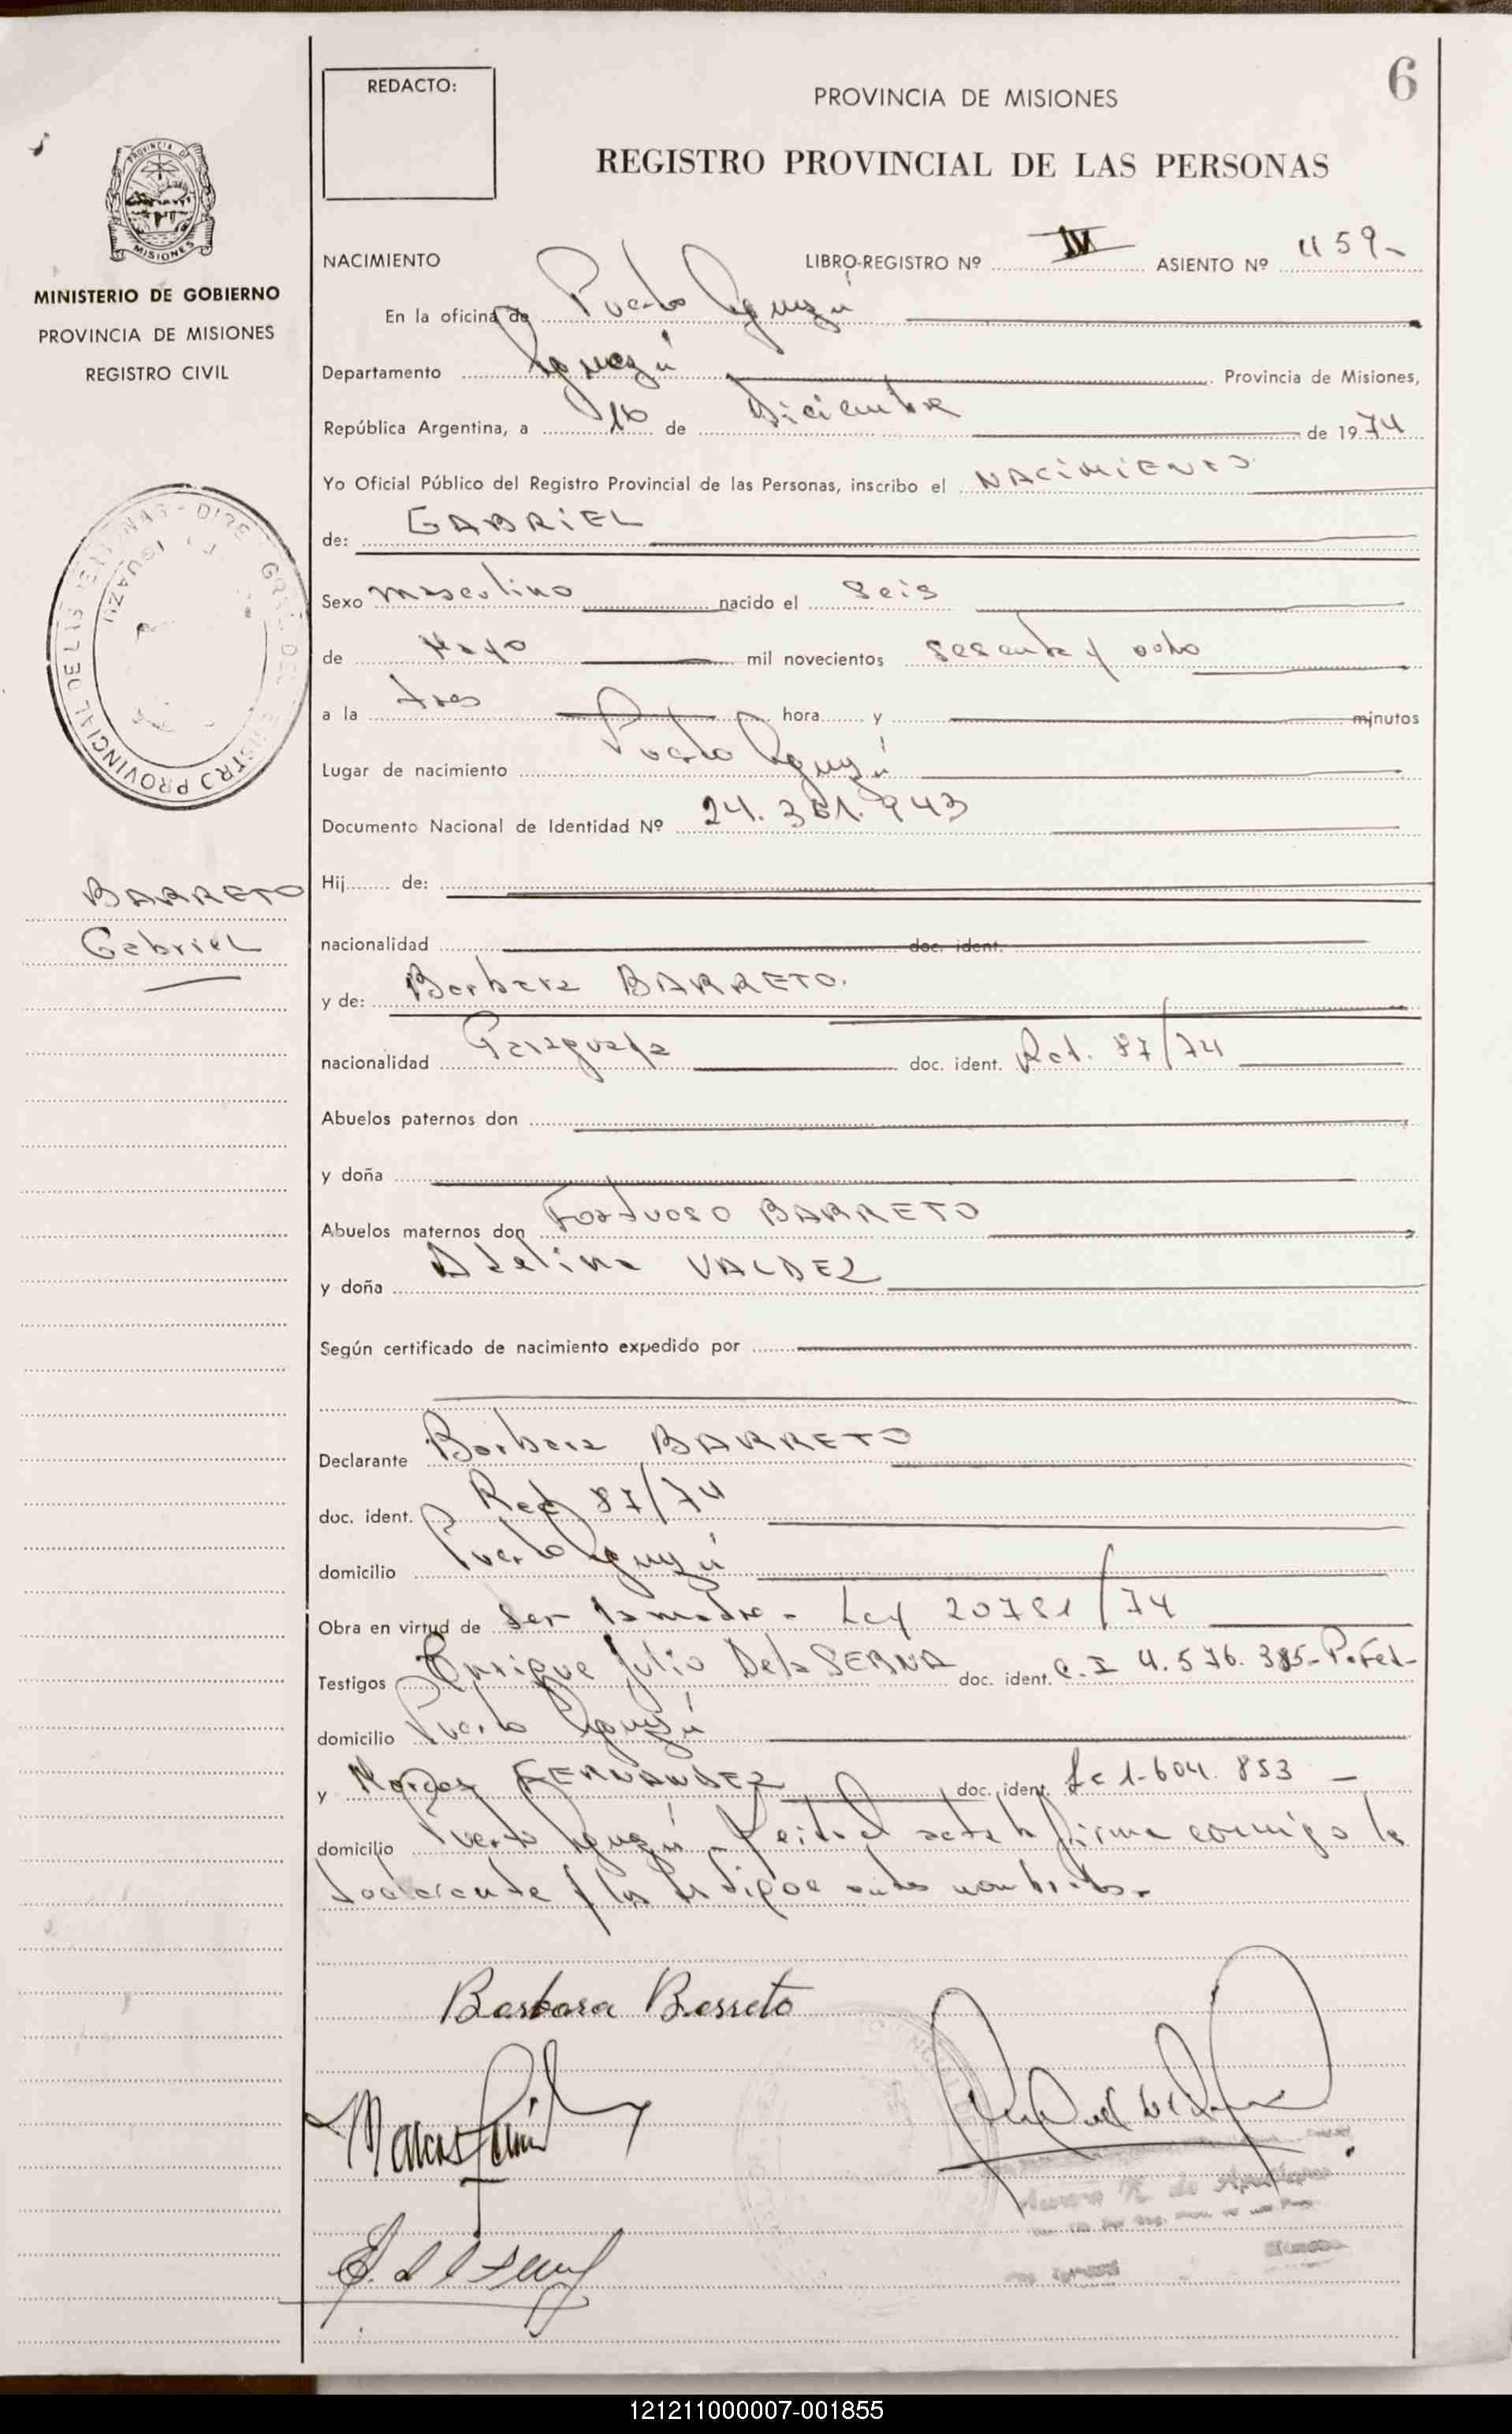 6
REDACTO:
PROVINCIA DE MISIONES
REGISTRO PROVINCIAL DE LAS PERSONAS
PROVINCIA DE
MISIONES
MINISTERIO DE GOBIERNO
PROVINCIA DE MISIONES
REGISTRO CIVIL
NACIMIENTO LIBRO-REGISTRO Nº III ASIENTO Nº 1159-
En la oficina de Puerto Iguazú
Departamento Iguazú Provincia de Misiones,
República Argentina, a 16 de Diciembre de 1974
Yo Oficial Público del Registro Provincial de las Personas, inscribo el NACIMIENTO
de: GABRIEL
Sexo masculino nacido el seis
de Mayo mil novecientos sesenta y ocho
a la tres hora y minutos
Lugar de nacimiento Puerto Iguazú
Documento Nacional de Identidad Nº 24.361.943
BARRETO
Gabriel
Hij de:
nacionalidad doc. ident.
y de: Barbara BARRETO.
nacionalidad Paraguaya doc. ident. 87/74
Abuelos paternos don
y doña
Abuelos maternos don BARRETO
y doña VALDEZ
Según certificado de nacimiento expedido por
Declarante Barbara BARRETO
doc. ident. 87/74
domicilio Puerto Iguazú
Obra en virtud de Ser la madre - Ley 20781/74
Testigos Enrique Julio De la SERNA doc. ident. C.I 4.576.385-P.Fed-
domicilio Puerto Iguazú
y Marcos FERNANDEZ doc. ident. 1.604.853 -
domicilio Puerto Iguazú - Leida el acta la firma conmigo la
declarante y los testigos antes nombrados-
Barbara Barreto
121211000007-001855